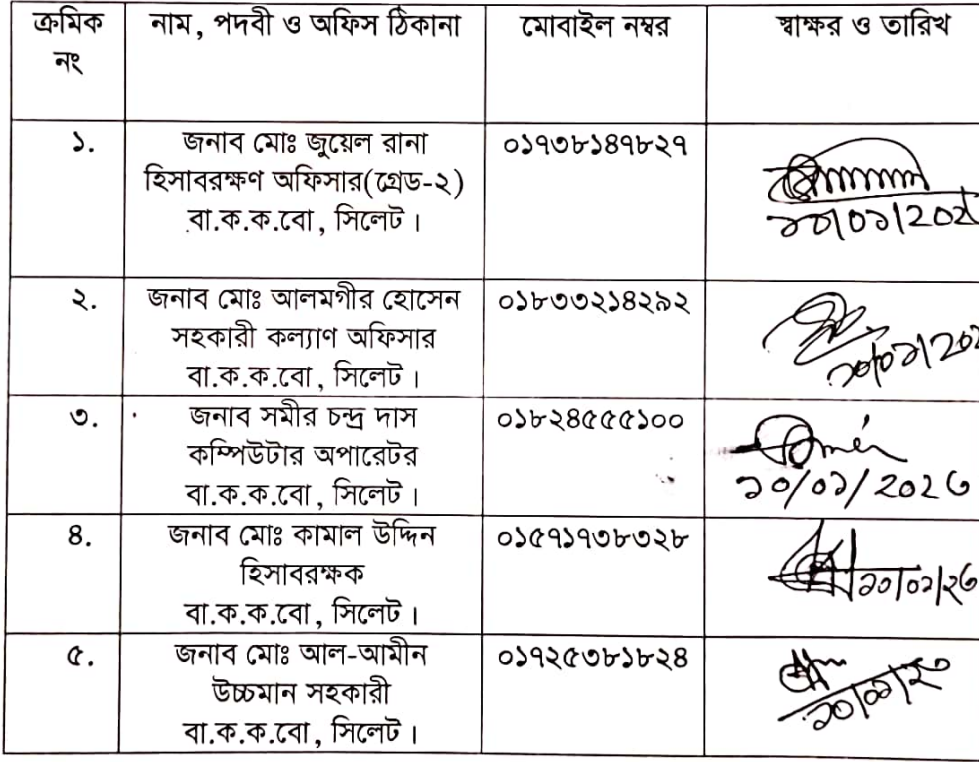 ক্রমিক নং
নাম, পদবী ও অফিস ঠিকানা
মোবাইল নম্বর
স্বাক্ষর ও তারিখ
১.
জনাব মোঃ জুয়েল রানা
হিসাবরক্ষণ অফিসার(গ্রেড-২)
বা.ক.ক.বো, সিলেট।
০১৭৩৮১৪৭৮২৭
২.
জনাব মোঃ আলমগীর হোসেন
সহকারী কল্যাণ অফিসার
বা.ক.ক.বো, সিলেট।
০১৮৩৩২১৪২৯২
৩.
জনাব সমীর চন্দ্র দাস
কম্পিউটার অপারেটর
বা.ক.ক.বো, সিলেট।
০১৮২৪৫৫৫১০০
৪.
জনাব মোঃ কামাল উদ্দিন
হিসাবরক্ষক
বা.ক.ক.বো, সিলেট।
০১৫৭১৭৩৮৩২৮
৫.
জনাব মোঃ আল-আমীন
উচ্চমান সহকারী
বা.ক.ক.বো, সিলেট।
০১৭২৫৩৮১৮২৪